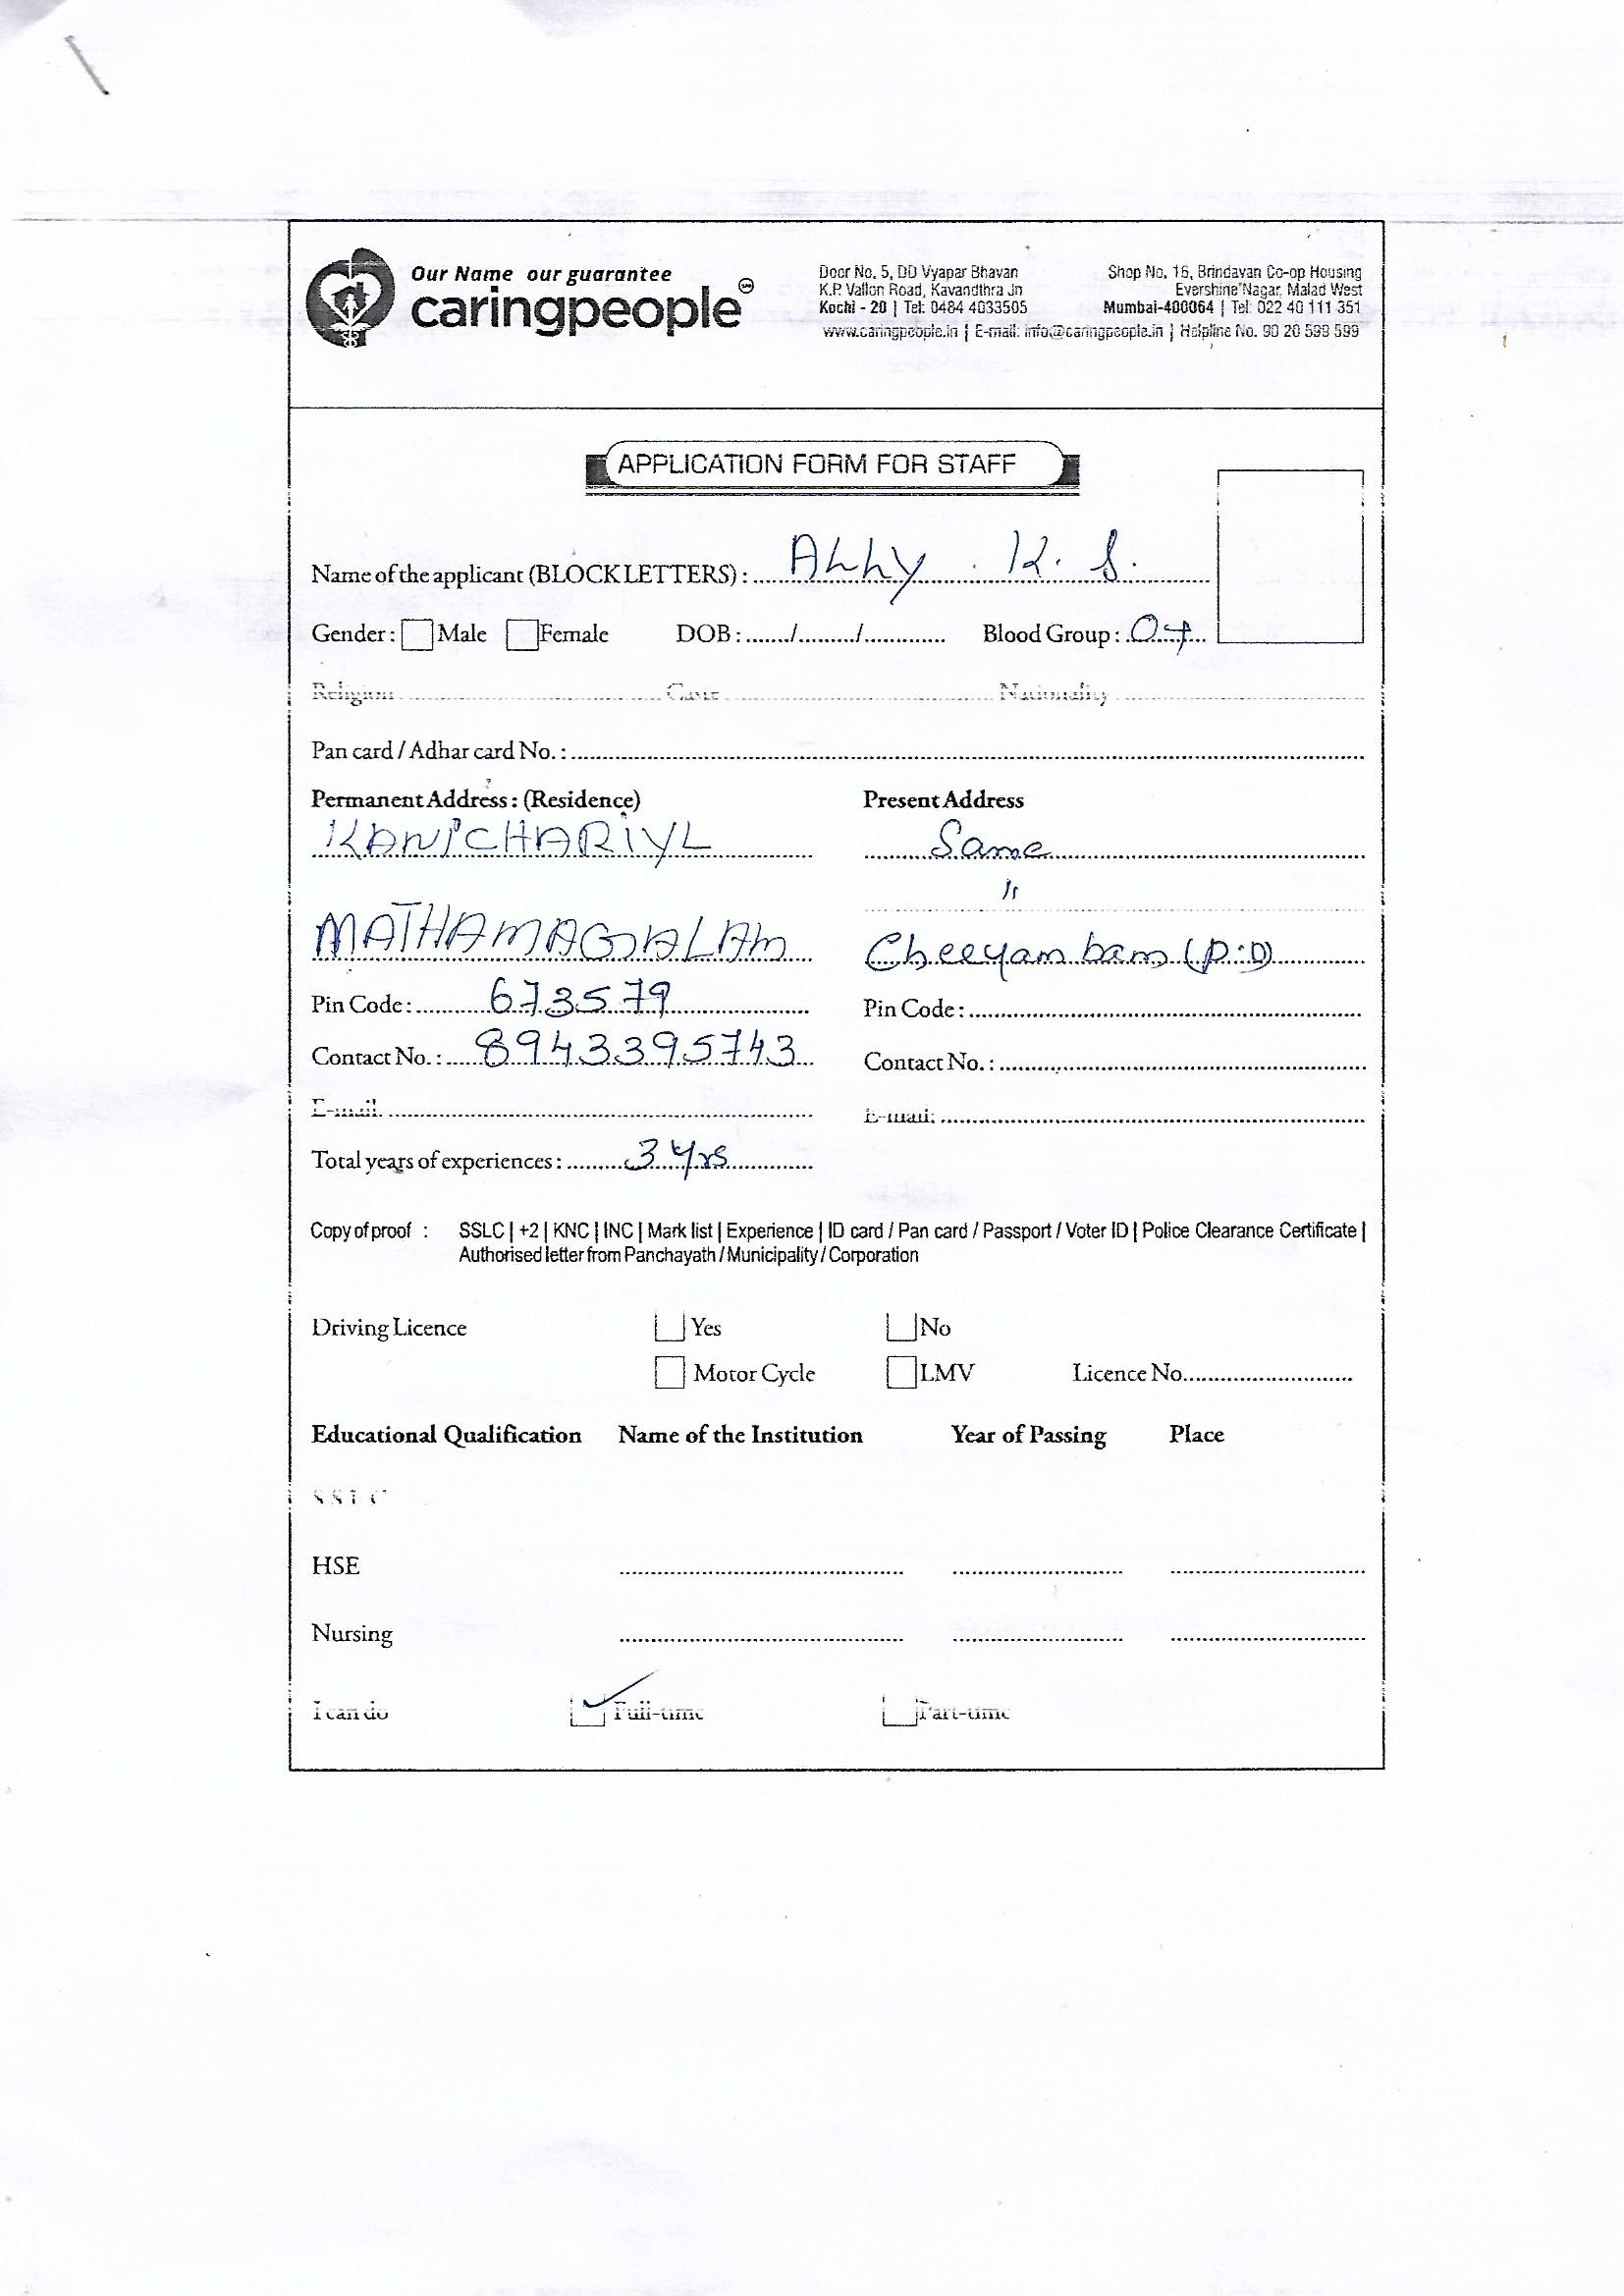 Our Name our guarantee
caringpeople
Door No. 5, DD Vyapar Bhavan
K.P. Vallon Road, Kavandthra Jn
Kochi - 20 | Tel: 0484 4033505
Shop No. 16, Brindavan Co-op Housing
Evershine Nagar, Malad West
Mumbai-400064 | Tel: 022 40 111 351
www.caringpeople.in | E-mail: info@caringpeople.in | Helpline No. 90 20 599 599
APPLICATION FORM FOR STAFF
Name of the applicant (BLOCK LETTERS) : ALLY . K. S.
Gender : Male Female DOB : ....../........./............ Blood Group : O+
Religion Caste Nationality
Pan card / Adhar card No. :
Permanent Address : (Residence) Present Address
KANICHARIYL Same
"
MATHAMAGALAM Cheeyambam (P.O)
Pin Code : 673579 Pin Code :
Contact No. : 8943395743 Contact No. :
E-mail: E-mail:
Total years of experiences : 3 yrs
Copy of proof : SSLC | +2 | KNC | INC | Mark list | Experience | ID card / Pan card / Passport / Voter ID | Police Clearance Certificate |
Authorised letter from Panchayath / Municipality / Corporation
Driving Licence Yes No
Motor Cycle LMV Licence No.
Educational Qualification Name of the Institution Year of Passing Place
SSLC
HSE
Nursing
I can do Full-time Part-time